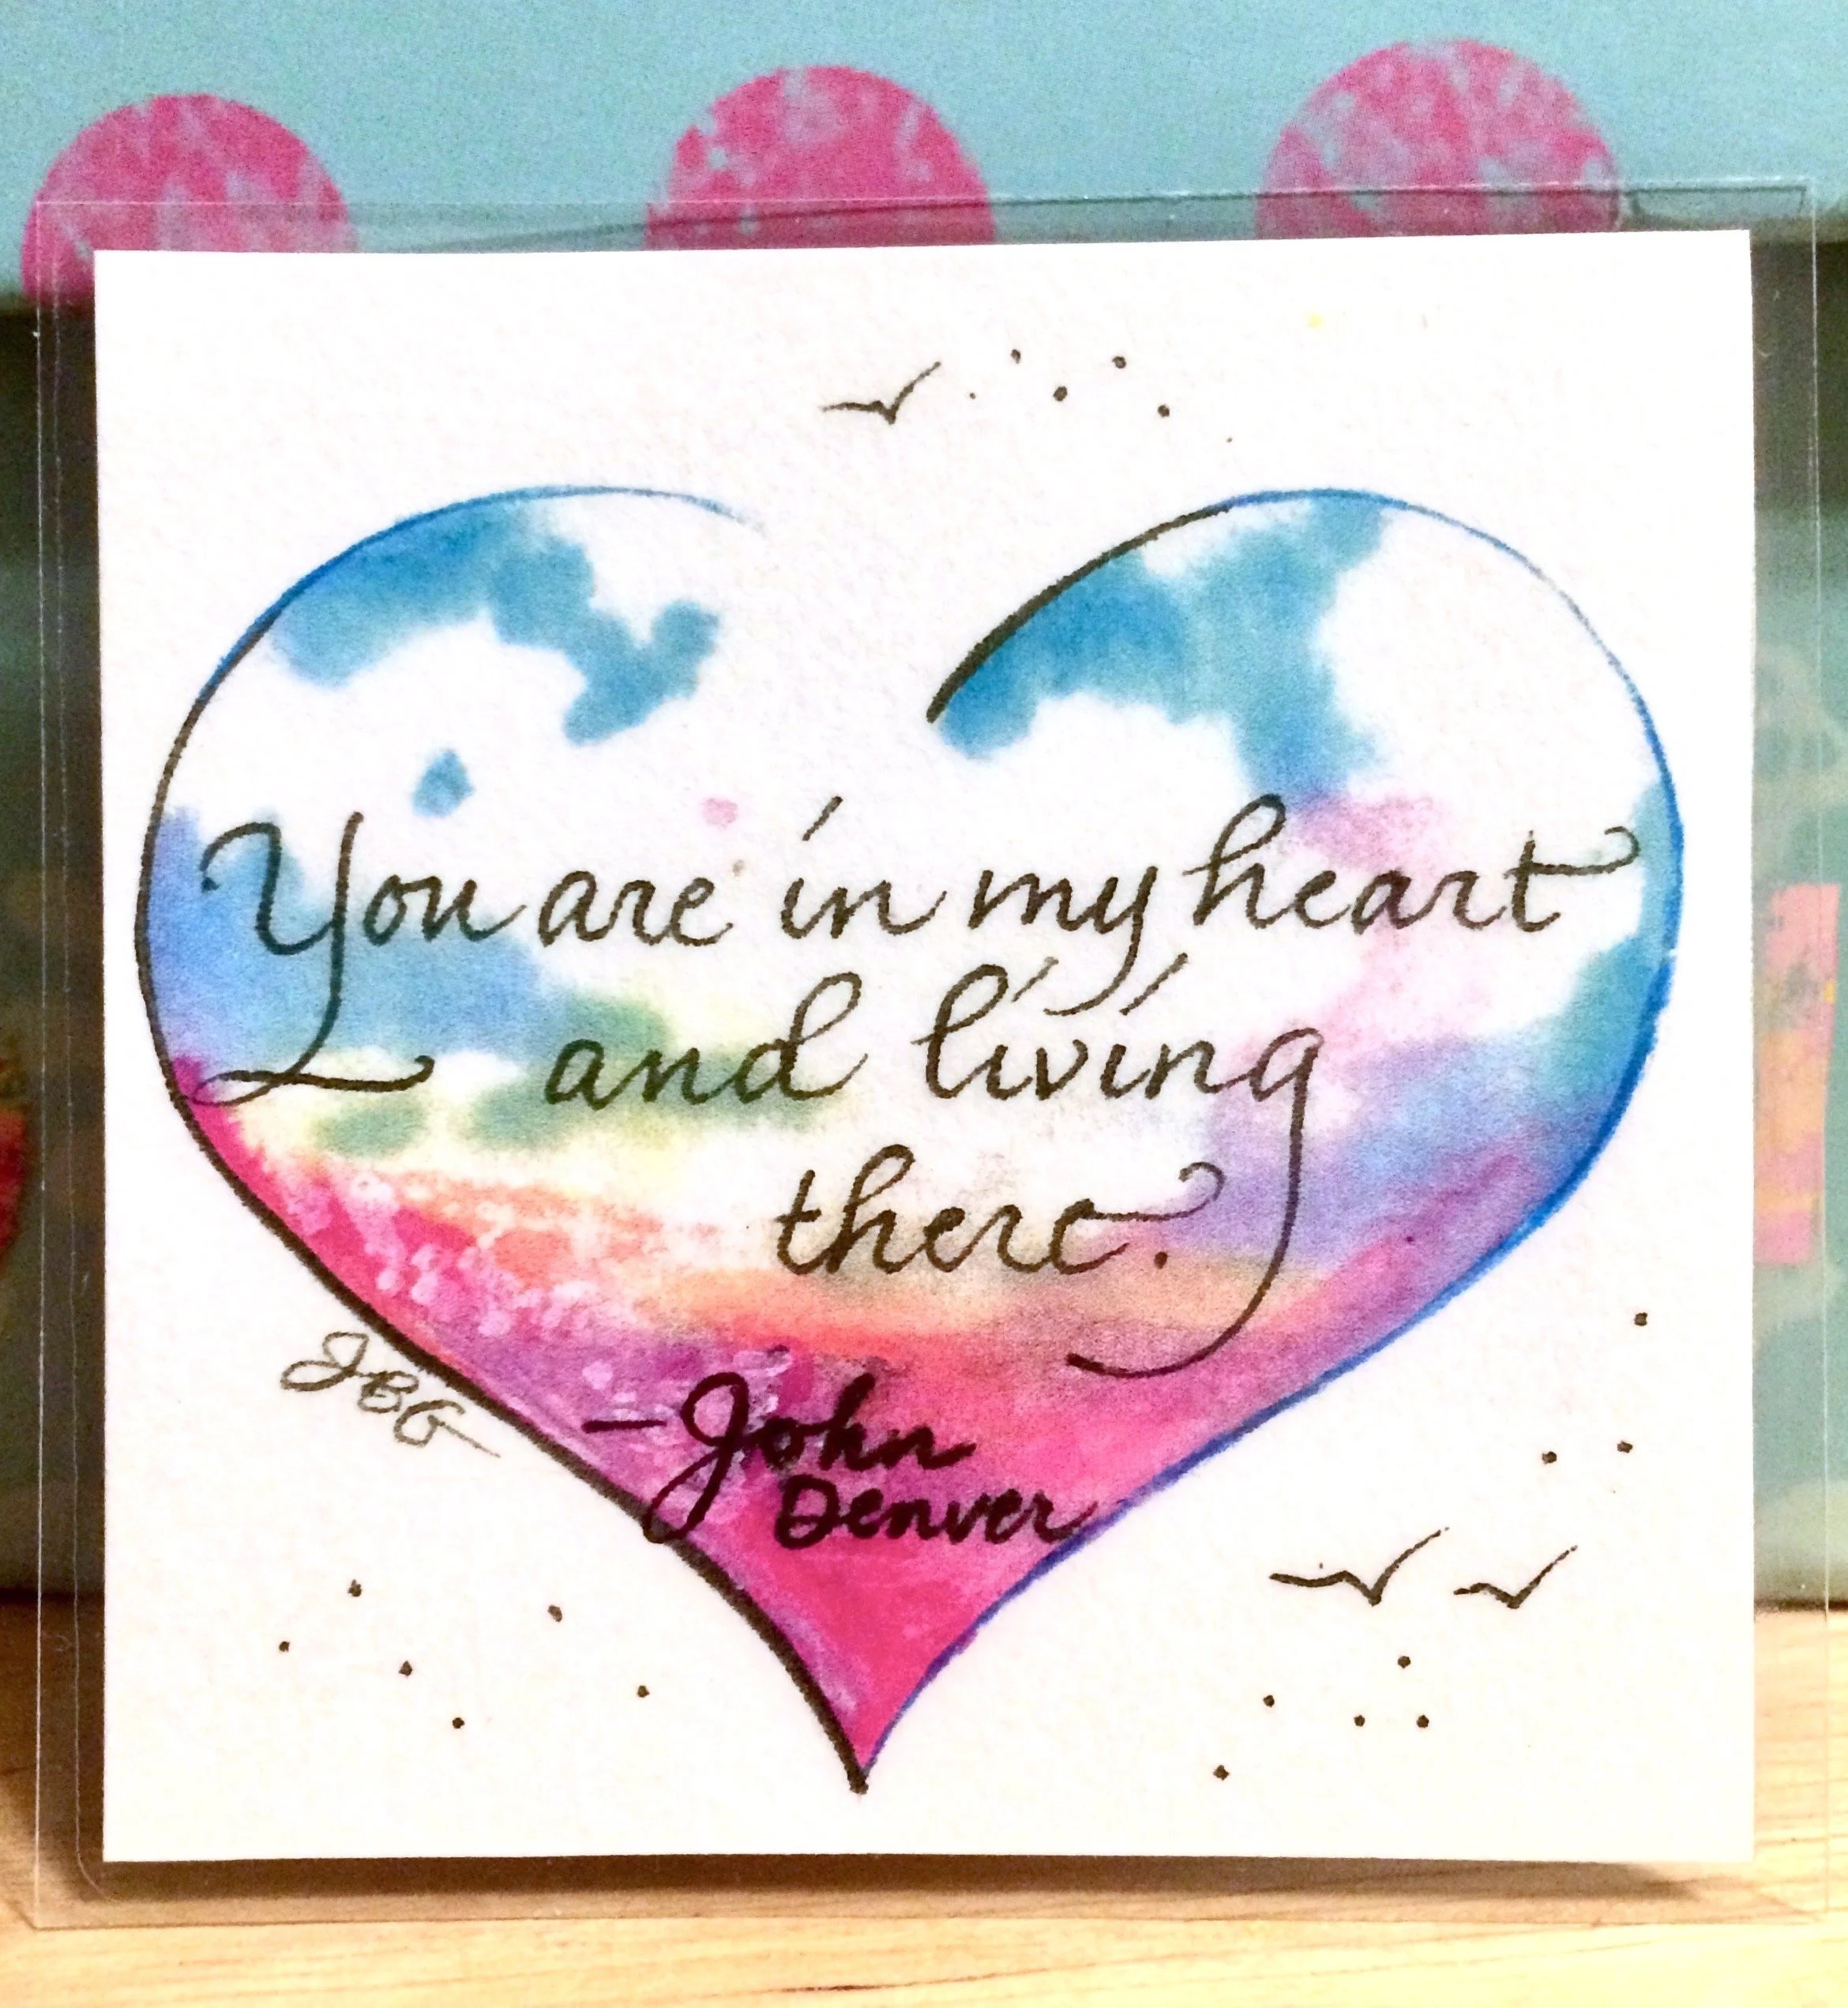 You are in my heart
and living
there.
JBG
—John
Denver